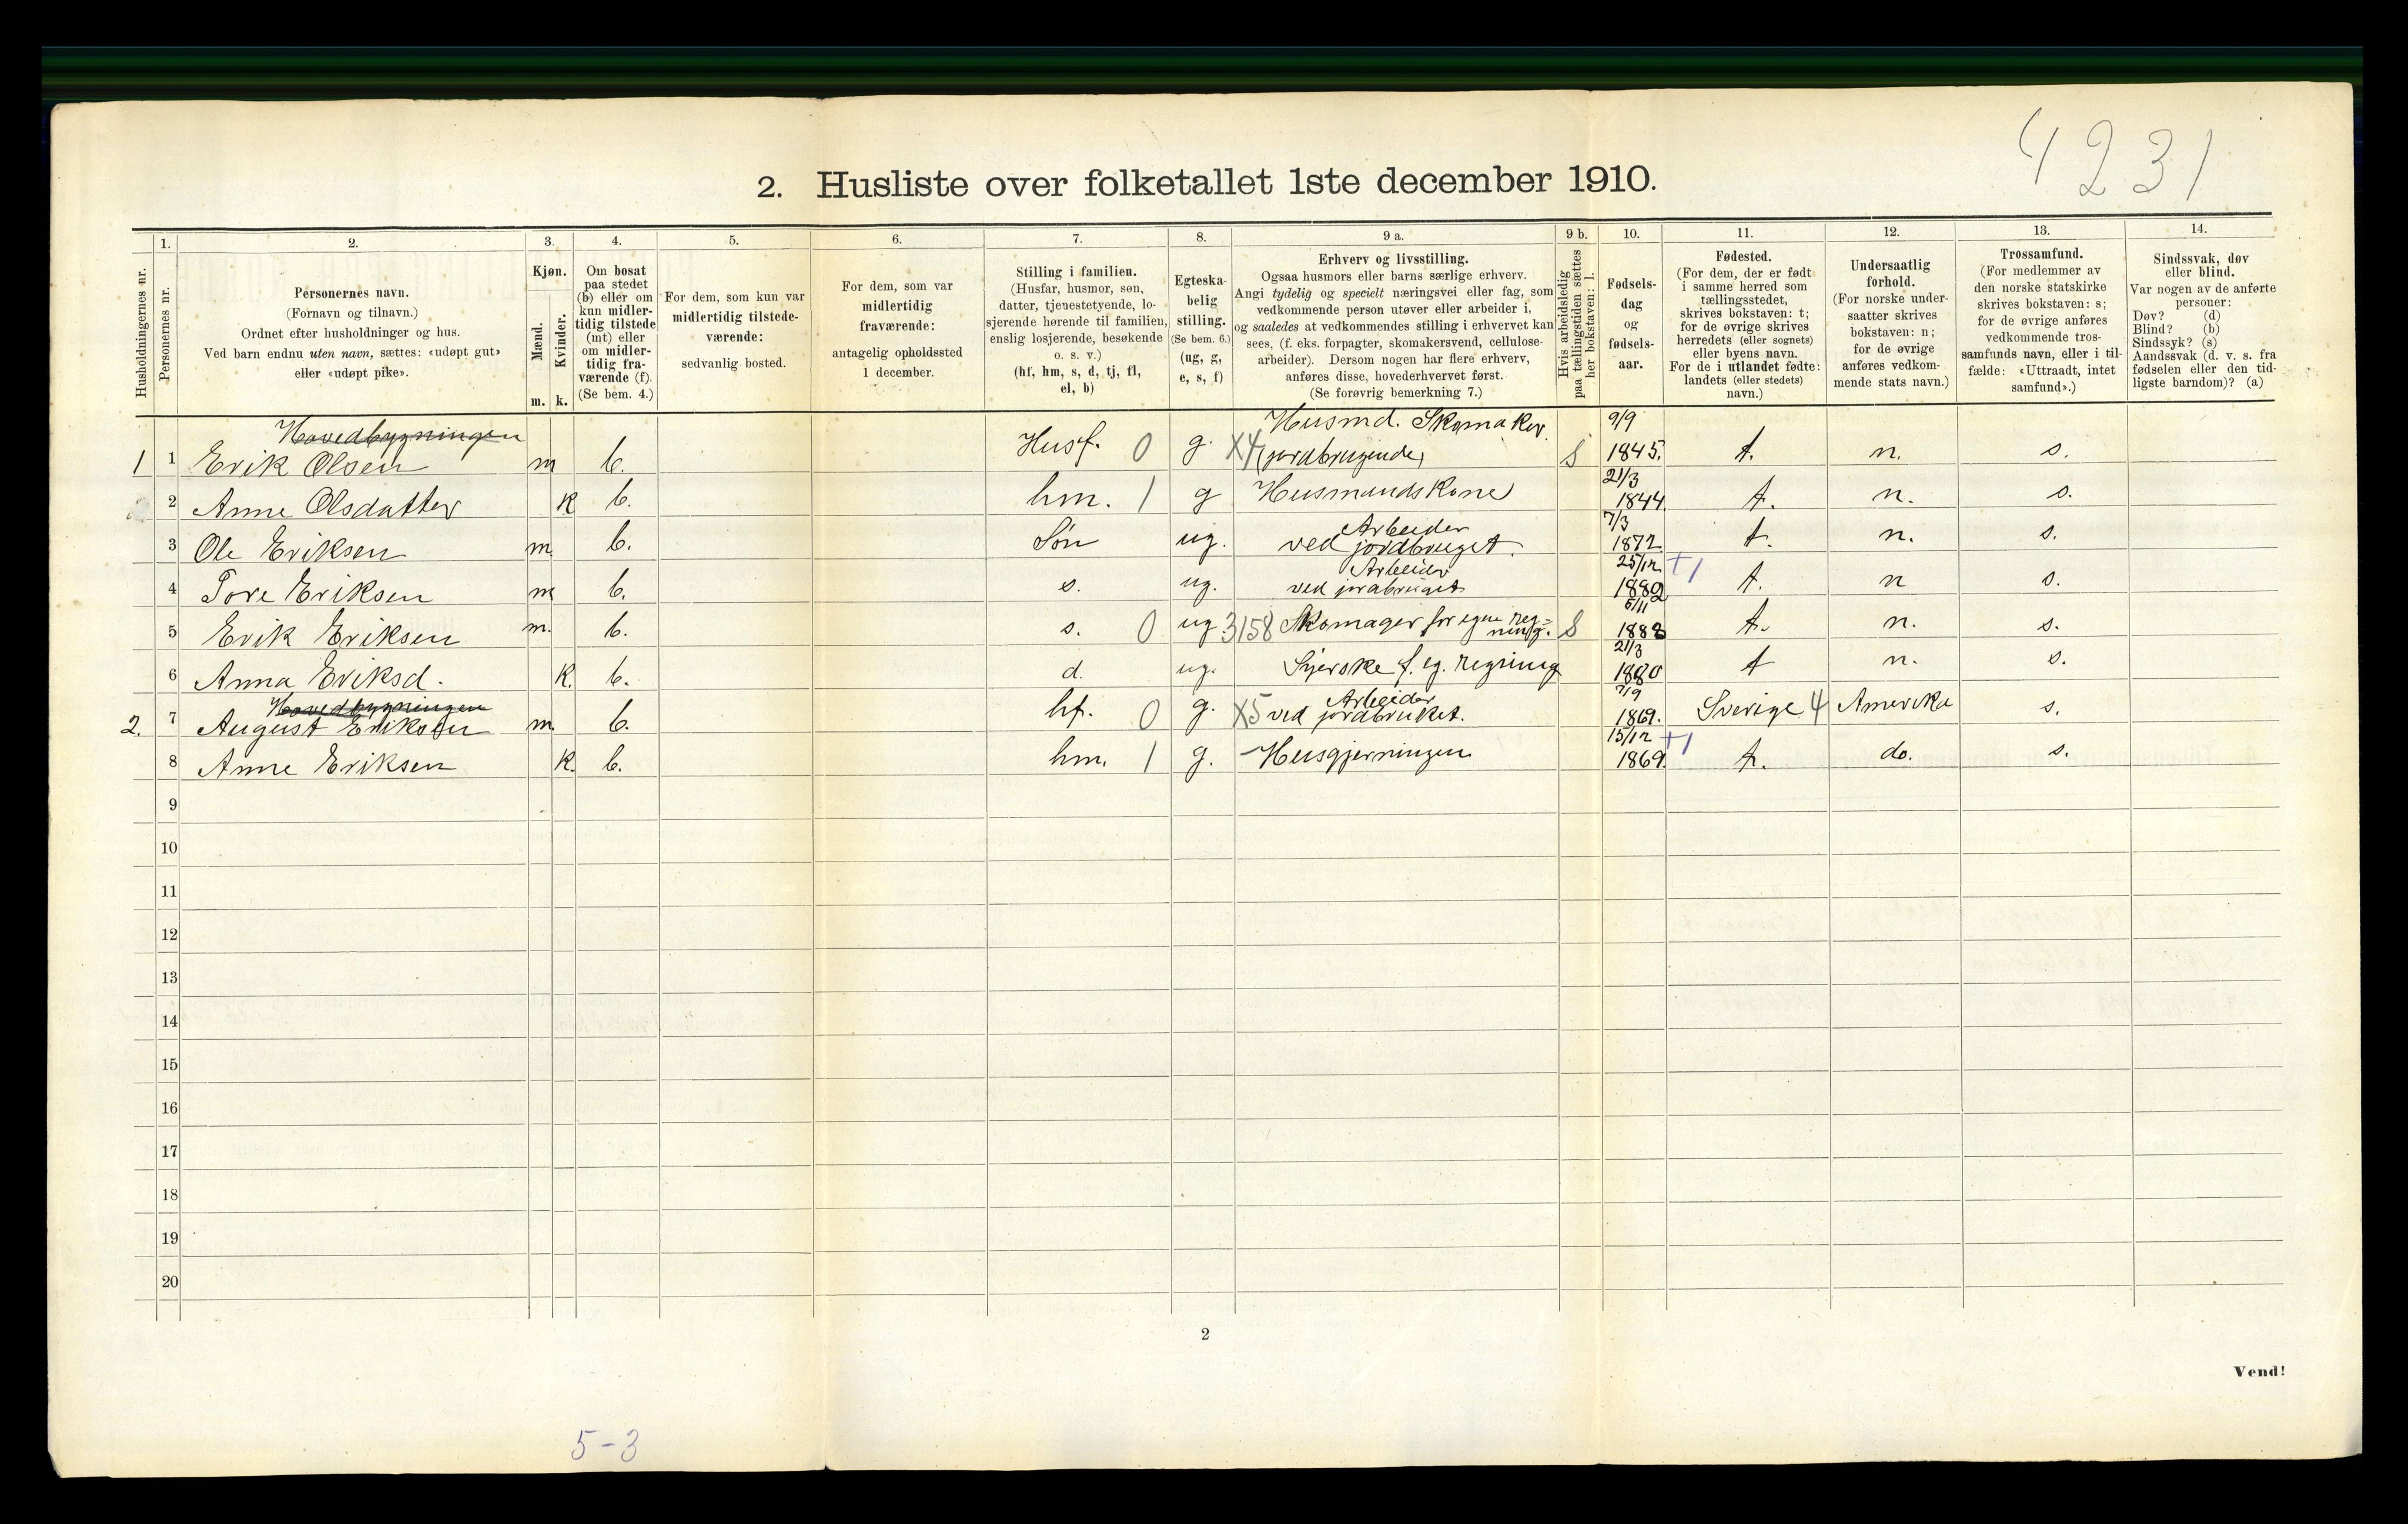 4231
2. Husliste over folketallet 1ste december 1910.
Husholdningernes nr.
1.
Personernes nr.
2.
Personernes navn.
(Fornavn og tilnavn.)
Ordnet efter husholdninger og hus.
Ved barn endnu uten navn, sættes: «udøpt gut»
eller «udøpt pike».
3.
Kjøn.
Mænd.
Kvinder.
m. k.
4.
Om bosat
paa stedet
(b) eller om
kun midler-
tidig tilstede
(mt) eller
om midler-
tidig fra-
værende (f).
(Se bem. 4.)
5.
For dem, som kun var
midlertidig tilstede-
værende:
sedvanlig bosted.
6.
For dem, som var
midlertidig
fraværende:
antagelig opholdssted
1 december.
7.
Stilling i familien.
(Husfar, husmor, søn,
datter, tjenestetyende, lo-
sjerende hørende til familien,
enslig losjerende, besøkende
o. s. v.)
(hf, hm, s, d, tj, fl,
el, b)
8.
Egteska-
belig
stilling.
(Se bem. 6.)
(ug, g,
e, s, f)
9 a.
Erhverv og livsstilling.
Ogsaa husmors eller barns særlige erhverv.
Angi tydelig og specielt næringsvei eller fag, som
vedkommende person utøver eller arbeider i,
og saaledes at vedkommendes stilling i erhvervet kan
sees, (f. eks. forpagter, skomakersvend, cellulose-
arbeider). Dersom nogen har flere erhverv,
anføres disse, hovederhvervet først.
(Se forøvrig bemerkning 7.)
9 b.
Hvis arbeidsledig
paa tællingstiden sættes
her bokstaven: l.
10.
Fødsels-
dag
og
fødsels-
aar.
11.
Fødested.
(For dem, der er født
i samme herred som
tællingsstedet,
skrives bokstaven: t;
for de øvrige skrives
herredets (eller sognets)
eller byens navn.
For de i utlandet fødte:
landets (eller stedets)
navn.)
12.
Undersaatlig
forhold.
(For norske under-
saatter skrives
bokstaven: n;
for de øvrige
anføres vedkom-
mende stats navn.)
13.
Trossamfund.
(For medlemmer av
den norske statskirke
skrives bokstaven: s;
for de øvrige anføres
vedkommende tros-
samfunds navn, eller i til-
fælde: «Uttraadt, intet
samfund».)
14.
Sindssvak, døv
eller blind.
Var nogen av de anførte
personer:
Døv? (d)
Blind? (b)
Sindssyk? (s)
Aandssvak (d. v. s. fra
fødselen eller den tid-
ligste barndom)? (a)
Hovedbygningen Husmd. Skomaker. 9/9
1 1 Erik Olsen m b. Husf. 0 g. X4 (jordbrugende) S 1845. t. n. s.
21/3
2 Anne Olsdatter k b. hm. 1 g Husmandskone 1844. t. n. s.
Arbeider 7/3
3 Ole Eriksen m. b. Søn ug. ved jordbruget. 1872 t. n. s.
Arbeider 25/12 +1
4 Tore Eriksen m b. s. ug. ved jordbruget 1882 t. n s.
5/11
5 Erik Eriksen m. b. s. 0 ug. 3158 Skomager for egen reg-
ning. S 1888 t. n. s.
21/3
6 Anna Eriksd. k. b. d. ug. Syerske f. eg. regning 1880 t n. s.
Hovedbygningen Arbeider 7/9
2. 7 August Eriksen m. b. hf. 0 g. X5 ved jordbruket. 1869. Sverige 4 Amerika s.
15/12 +1
8 Anne Eriksen k. b. hm. 1 g. Husgjerningen 1869. t. do. s.
9
10
11
12
13
14
15
16
17
18
19
20
2
Vend!
5-3